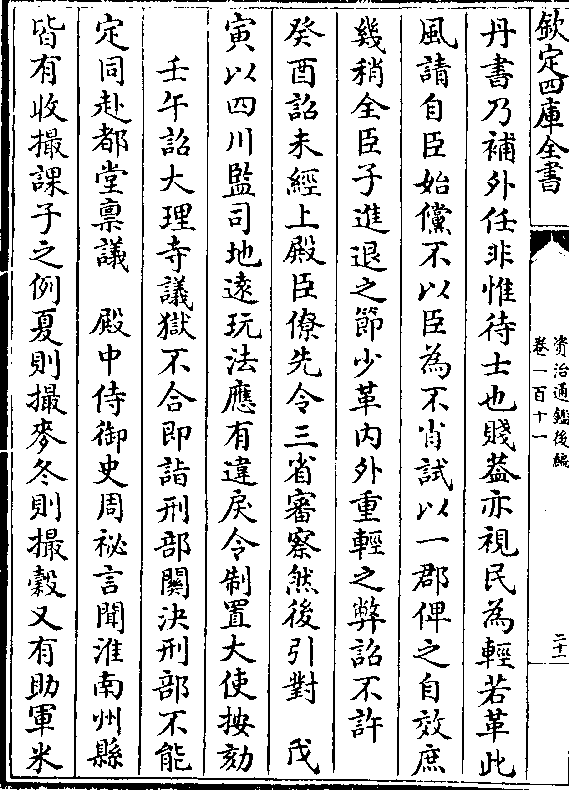 欽定四庫全書
資治通鑑後編
卷一百十一
二十一
丹書乃補外任非惟待士也賤葢亦視民為輕若革此
風請自臣始儻不以臣為不肖試以一郡俾之自效庶
幾稍全臣子進退之節少革内外重輕之弊詔不許
癸酉詔未經上殿臣僚先令三省審察然後引對　戊
寅以四川監司地逺玩法應有違戾令制置大使按劾
壬午詔大理寺議獄不合即詣刑部闗決刑部不能
定同赴都堂稟議　殿中侍御史周祕言聞淮南州縣
皆有收撮課子之例夏則撮麥冬則撮糓又有助軍米